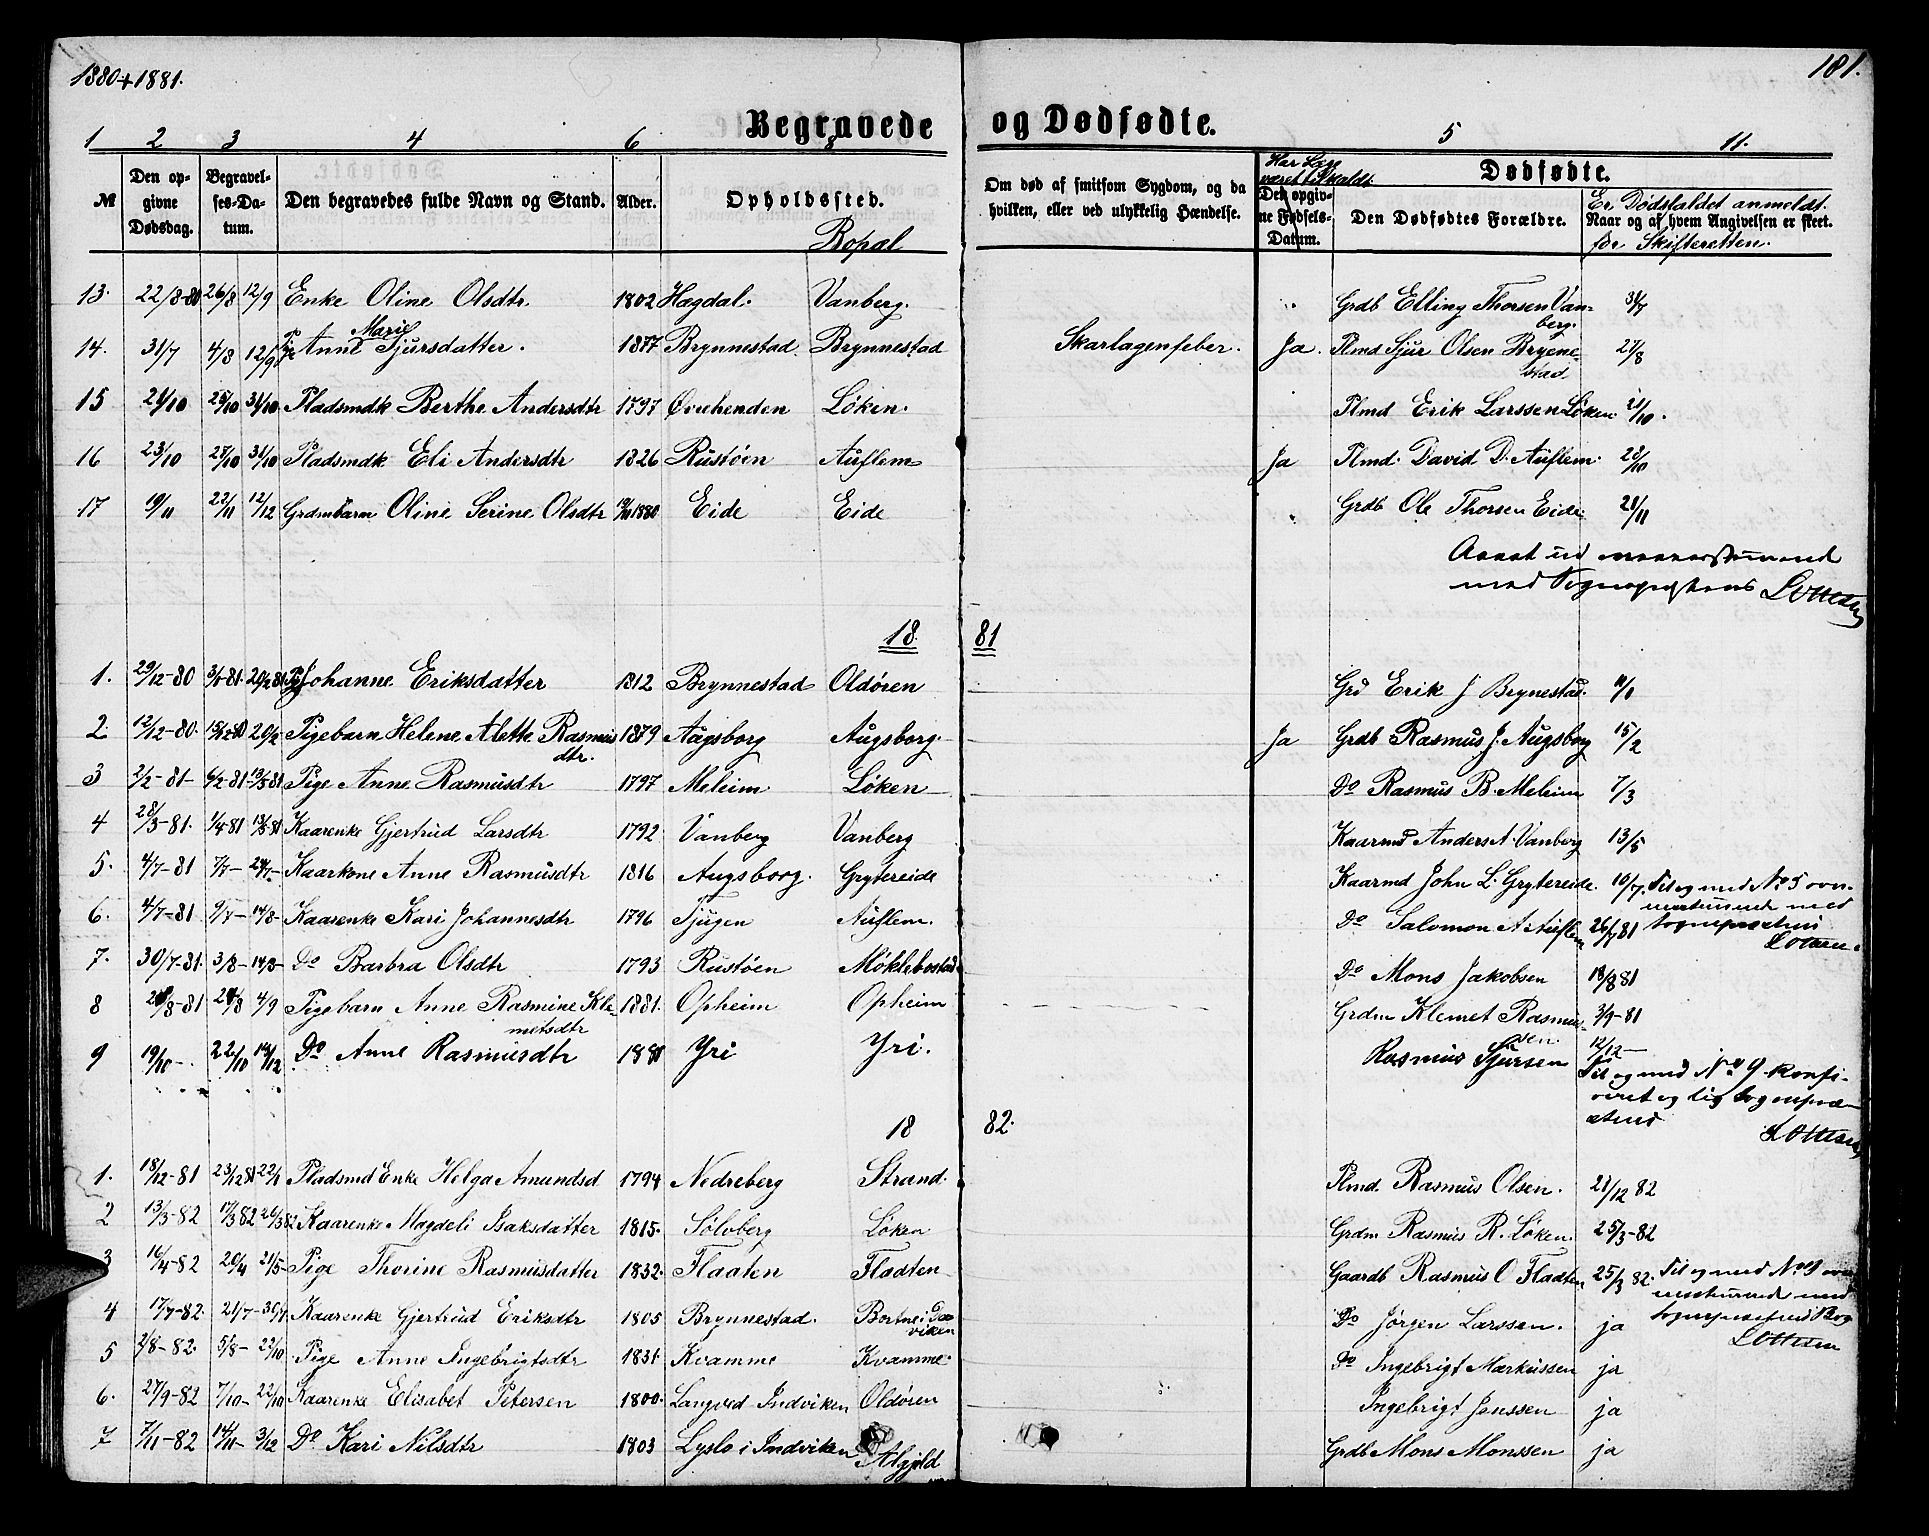 1880+1881.
181.
Begravede og Dødfødte.
1 2 3 4 6 8 5 11.
№
Den opgivne Dødsdag.
Begravelses-Datum.
Den begravedes fulde Navn og Stand.
Alder.
Opholdssted.
Bopæl
Om død af smitsom Sygdom, og da hvilken, eller ved ulykkelig Hændelse.
Har Læge været tilkaldt
Den opgivne Fødsels-Datum.
Dødfødte.
Den Dødfødtes Forældre.
Er Dødsfaldet anmeldt
Naar og af hvem Angivelsen er skeet.
for Skifteretten.
13. 22/8-80 26/8 12/9 Enke Oline Olsdtr. 1802 Hægdal. Vanberg. Grdb Elling Thorsen Vanberg. 31/7
14. 31/7 4/8 12/9 Pge Anne Marie Sjursdatter. 1877 Brynnestad Brynnestad Skarlagenfeber. Ja. Plmd Sjur Olsen Brynestad 21/8
15 21/10 25/10 31/10 Pladsmdk Berthe Andersdtr 1797 Øvrehenden Løken. Plmd Erik Larssen Løken 21/10.
16 23/10 27/10 31/10 Pladsmdk Eli Andersdtr 1826 Rustøen Auflem Ja Plmd. David D. Auflem. 28/10
17 19/11 22/11 12/12 Grdmbarn Oline Serine Olsdtr 19/11 1880 Eide Eide Grdb Ole Thorsen Eide 21/11
med
LOttesen
18 81
1. 29/12-80 3/1-81. 20/2 81 Pige Johanne Eriksdatter 1812 Brynnestad Oldøren Grd Erik J Brynestad. 11/1
2. 12/12-80. 15/12-80 20/2 Pigebarn Helene Alette Rasmusdtr. 1879 Augsborg Augsborg. Ja Grdb Rasmus J. Augsborg 15/2
3 2/2-81- 6/2-81 13/5 81 Pige Anne Rasmusdtr 1797 Meleim Løken Do Rasmus B. Meleim 7/3
4 28/3-81. 1/4-81 13/5-81 Kaarenke Gjertrud Larsdtr 1792. Vanberg Vanberg Kaarmd Anders A. Vanberg 13/5
5. 4/7-81 7/7- 24/7- Kaarkone Anne Rasmusdtr 1816 Augsborg. Grytereide Kaarmd John L. Grytereide. 10/7. Til og med No 5 over-
6. 4/7-81 9/7- 14/8- Kaarenke Kari Johannesdtr 1796 Tjugen Auflem. Do Salomon A Auflem 26/7 81
LOttesen.
7. 30/7-81. 3/8- 14/8- Do Barbra Olsdtr 1793 Rustøen Møklebostad Do Mons Jakobsen 18/8 81
8 21/8-81 24/8 4/9 Pigebarn Anne Rasmine Klemetsdtr 1881. Opheim Opheim Grdm Klemet Rasmussen 3/9-81
9 19/10-. 22/10 18/12 Do Anne Rasmusdtr 1881 Yri Yri. Rasmus Sjursen 12/12-
Til og med No 9 konfereret
LOttesen
18 82.
1. 18/12-81 23/12 81 22/1 Pladsmd Enke Helga Amundsd 1794 Nedreberg Strand. Plmd. Rasmus Olsen. 21/12 82
2 13/3-82 17/3 82 26/3 82 Kaarenke Magdeli Isaksdatter 1815. Sølvberg Løken Grdm Rasmus R. Løken. 25/3-82
3 16/4-82 20/4 21/5- Pige Thorine Rasmusdatter 1832. Flaaten Fladten Gaardb Rasmus O Fladten 25/3 82. Til og med No 3 over-
4 17/7-82. 21/7- 30/7 Kaarenke Gjertrud Eriksdtr 1805 Brynnestad. Bortne i Daviken Do Jørgen Larssen. ja
LOttesen
5 2/8-82. 5/8- 22/10 Pige Anne Ingebrigtsdtr 1831. Kvamme Kvamme. Do Ingebrigt Markussen ja
6. 27/9-82 7/10- 22/10 Kaarenke Elisabet Petersen 1800. Langved Indviken Oldøren Ingebrigt Jenssen ja
7 7/11-82 14/11- 3/12 Do Kari Nilsdtr 1803 Lyslo i Indviken Algjeld Grdb Mons Monssen ja